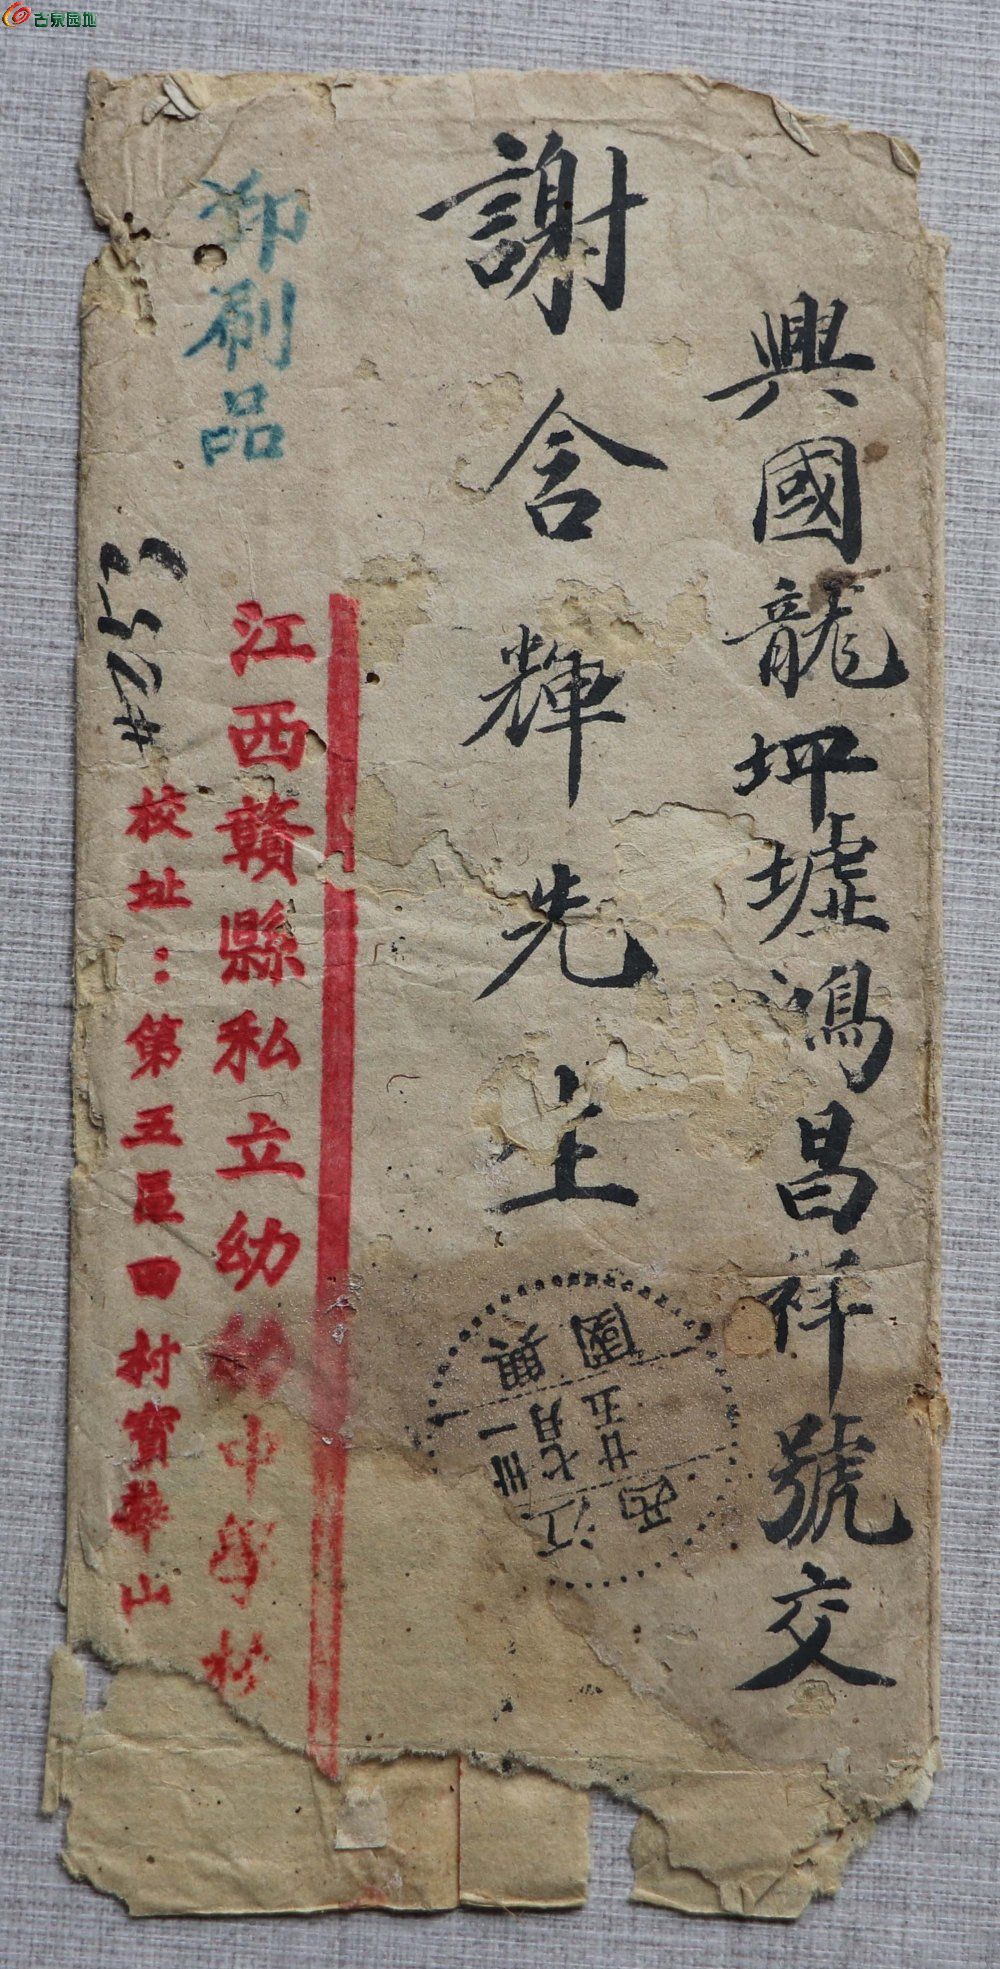 古泉园地
興國龍坪墟鴻昌祥號交
謝含輝先生
印刷品
江西贛縣私立幼幼中學校
校址：第五區田村寶華山
興國
卅一
七月
廿五
江西